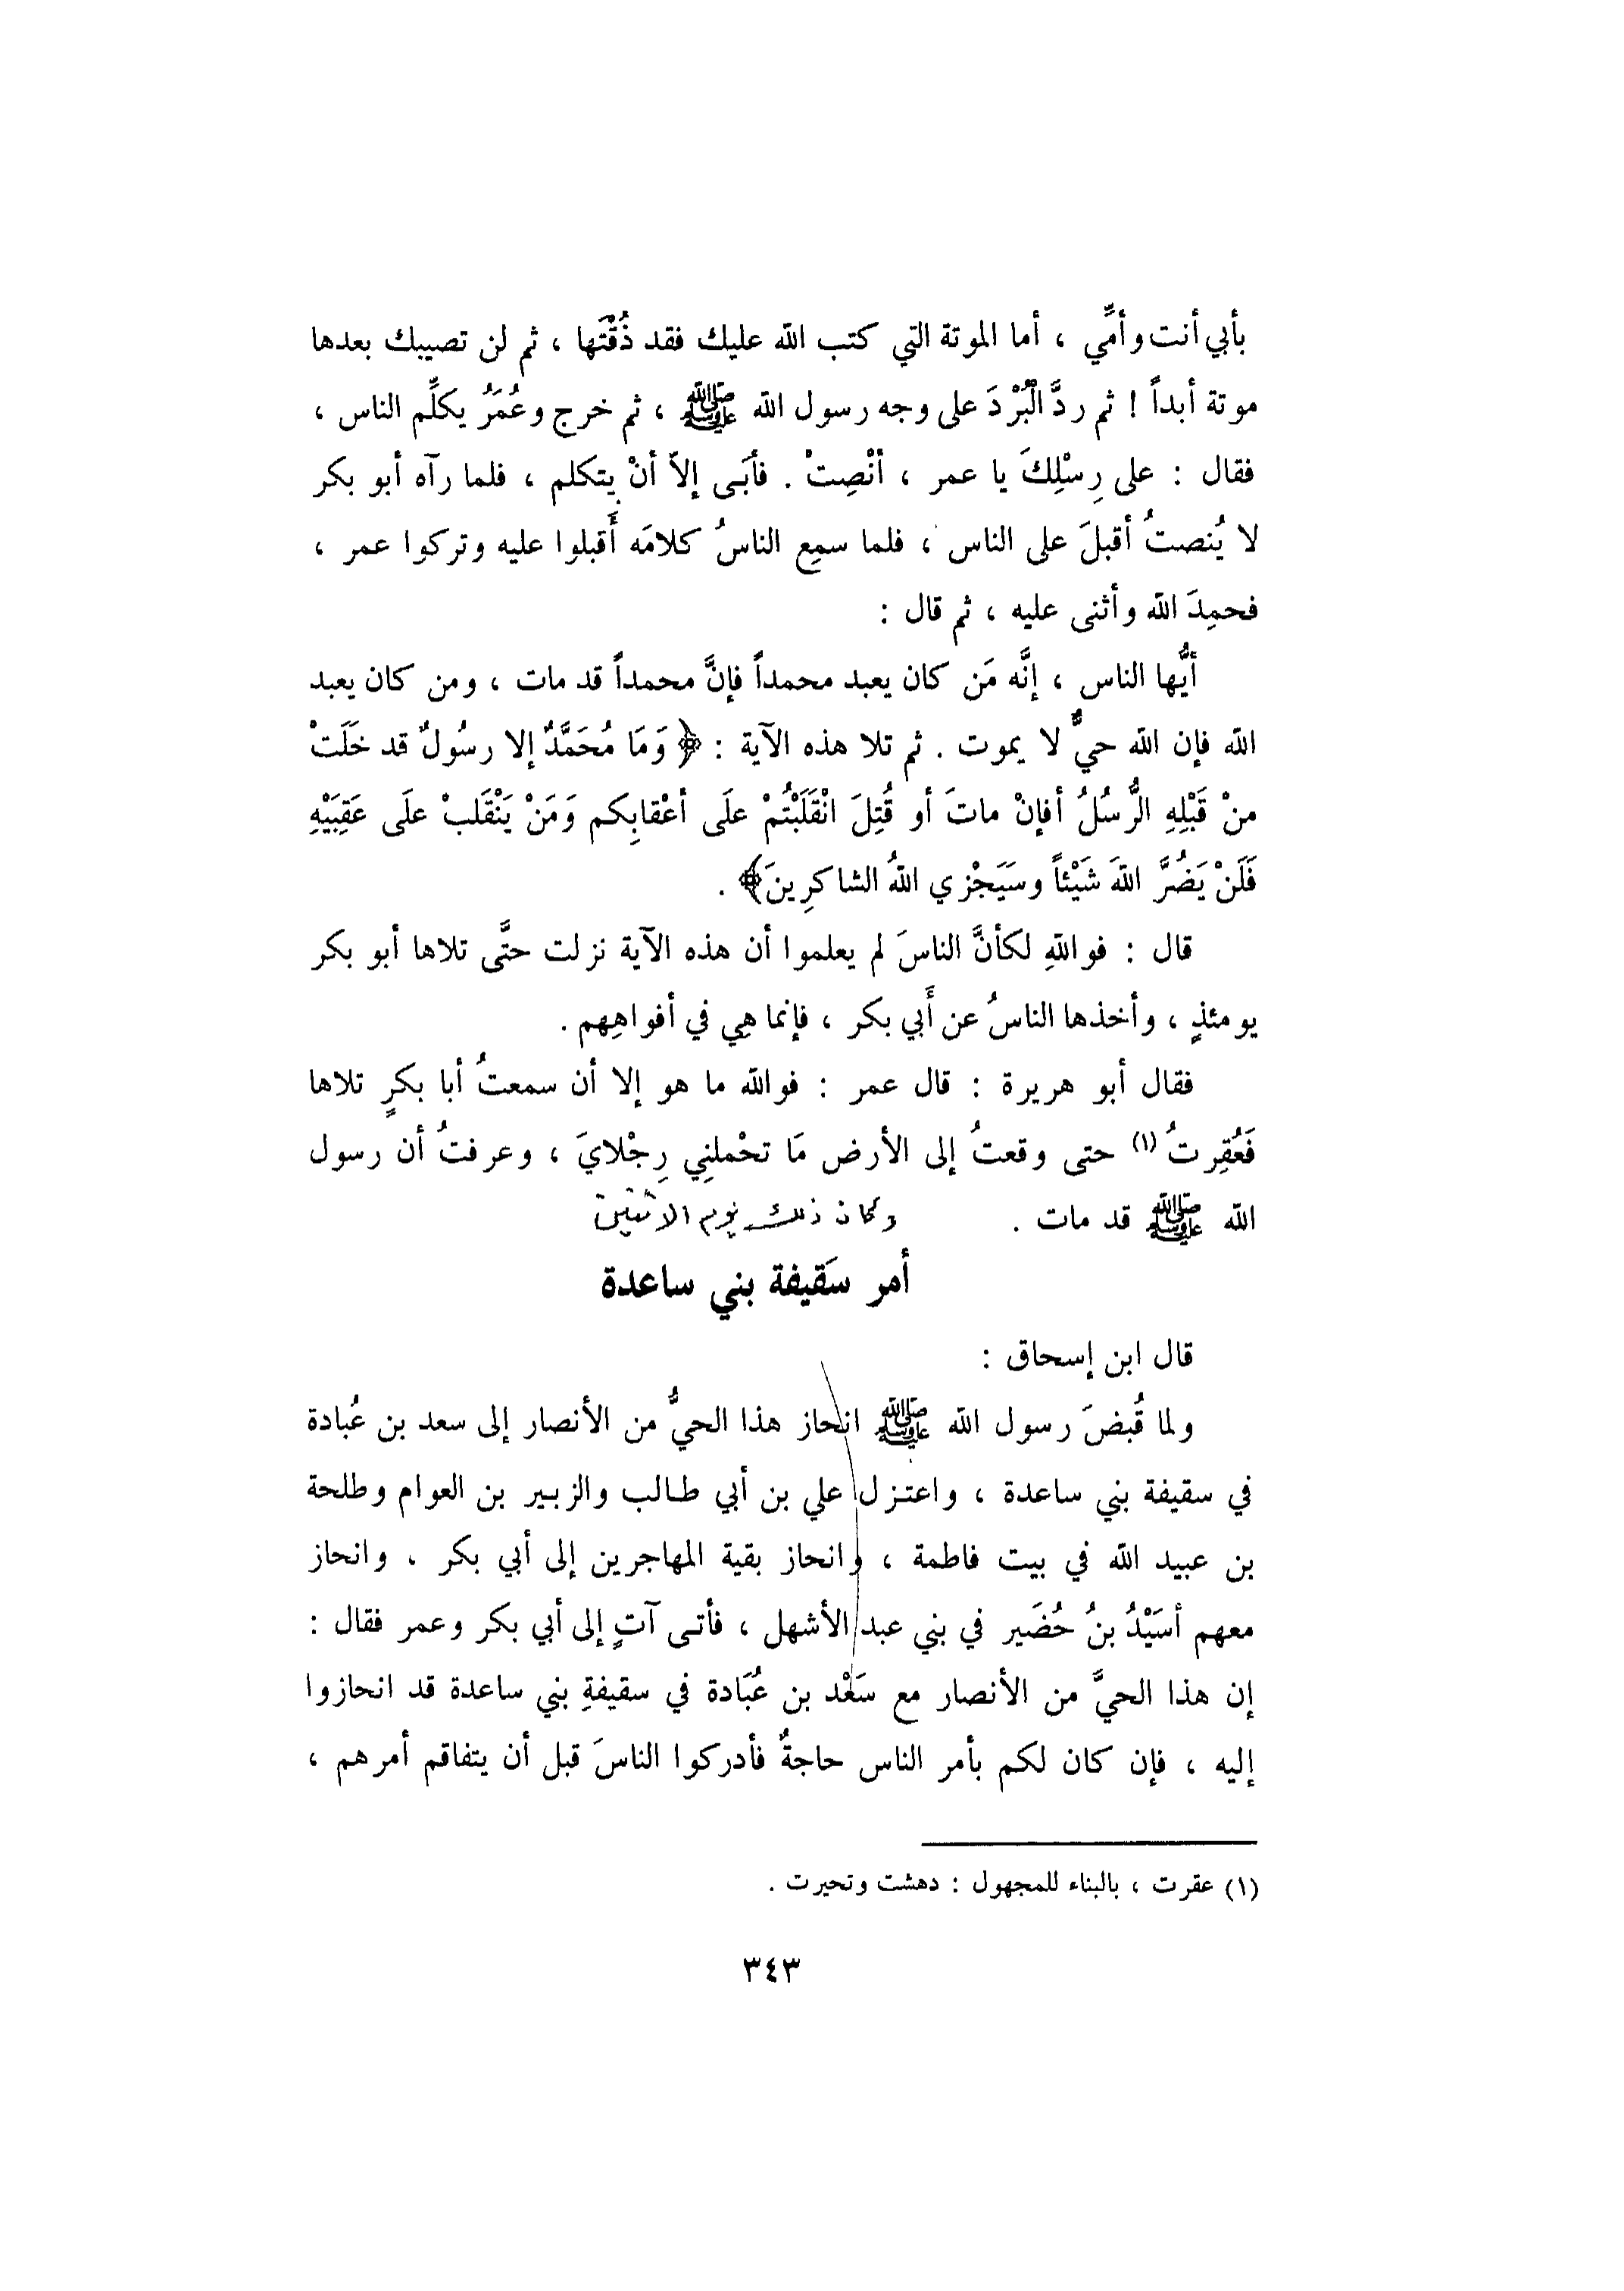 بأبي أنت وأمِّي ، أما الموتة التي كتب الله عليك فقد ذُقْتَها ، ثم لن تصيبك بعدها
موتة أبداً ! ثم ردَّ الْبُرْدَ على وجه رسول الله ﷺ ، ثم خرج وعُمَرُ يكلِّم الناس ،
فقال : على رِسْلِكَ يا عمر ، أنْصِتْ . فأبَى إلاّ أنْ يتكلم ، فلما رآه أبو بكر
لا يُنصتُ أقبلَ على الناس ، فلما سمِع الناسُ كلامَه أَقبلوا عليه وتركوا عمر ،
فحمِدَ الله وأثنى عليه ، ثم قال :
أيُّها الناس ، إنَّه مَن كان يعبد محمداً فإنَّ محمداً قد مات ، ومن كان يعبد
الله فإن الله حيٌّ لا يموت . ثم تلا هذه الآية : ﴿ وَمَا مُحَمَّدٌ إلا رسُولٌ قد خَلَتْ
منْ قَبْلِهِ الرُّسُلُ أفإنْ ماتَ أو قُتِلَ انْقَلَبْتُمْ علَى أعْقابِكم وَمَنْ يَنْقَلبْ علَى عَقِبَيْهِ
فَلَنْ يَضُرَّ اللهَ شَيْئاً وسَيَجْزي اللهُ الشاكرِينَ﴾ .
قال : فواللهِ لكأنَّ الناسَ لم يعلموا أن هذه الآية نزلت حتَّى تلاها أبو بكر
يومئذٍ ، وأخذها الناسُ عن أَبي بكر ، فإنما هِي في أفواهِهم .
فقال أبو هريرة : قال عمر : فوالله ما هو إلا أن سمعتُ أبا بكرٍ تلاها
فَعُقِرتُ (١) حتى وقعتُ إلى الأرض مَا تحْملنِي رِجْلايَ ، وعرفتُ أن رسول
الله ﷺ قد مات . وكان ذلك يوم الاثنين
أمر سَقيفة بني ساعدة
قال ابن إسحاق :
ولما قُبضَ رسول الله ﷺ انحاز هذا الحيُّ من الأنصار إلى سعد بن عُبادة
في سقيفة بني ساعدة ، واعتزل علي بن أبي طالب والزبير بن العوام وطلحة
بن عبيد الله في بيت فاطمة ، وانحاز بقية المهاجرين إلى أبي بكر ، وانحاز
معهم أسَيْدُ بنُ حُضَير في بني عبد الأشهل ، فأتى آتٍ إلى أبي بكر وعمر فقال :
إن هذا الحيَّ من الأنصار مع سَعْد بن عُبَادة في سقيفةِ بني ساعدة قد انحازوا
إليه ، فإن كان لكم بأمر الناس حاجةٌ فأدركوا الناسَ قبل أن يتفاقم أمرهم ،
(١) عقرت ، بالبناء للمجهول : دهشت وتحيرت .
٣٤٣